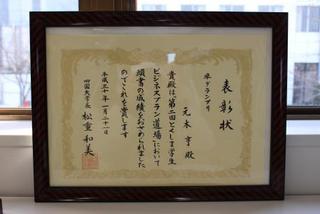 表彰状
準グランプリ
元木 亨 殿
貴殿は第二回とくしま学生
ビジネスプラン道場において
頭書の成績をおさめられました
のでこれを賞します
平成三十年一月二十一日
四国大学長 松重和美